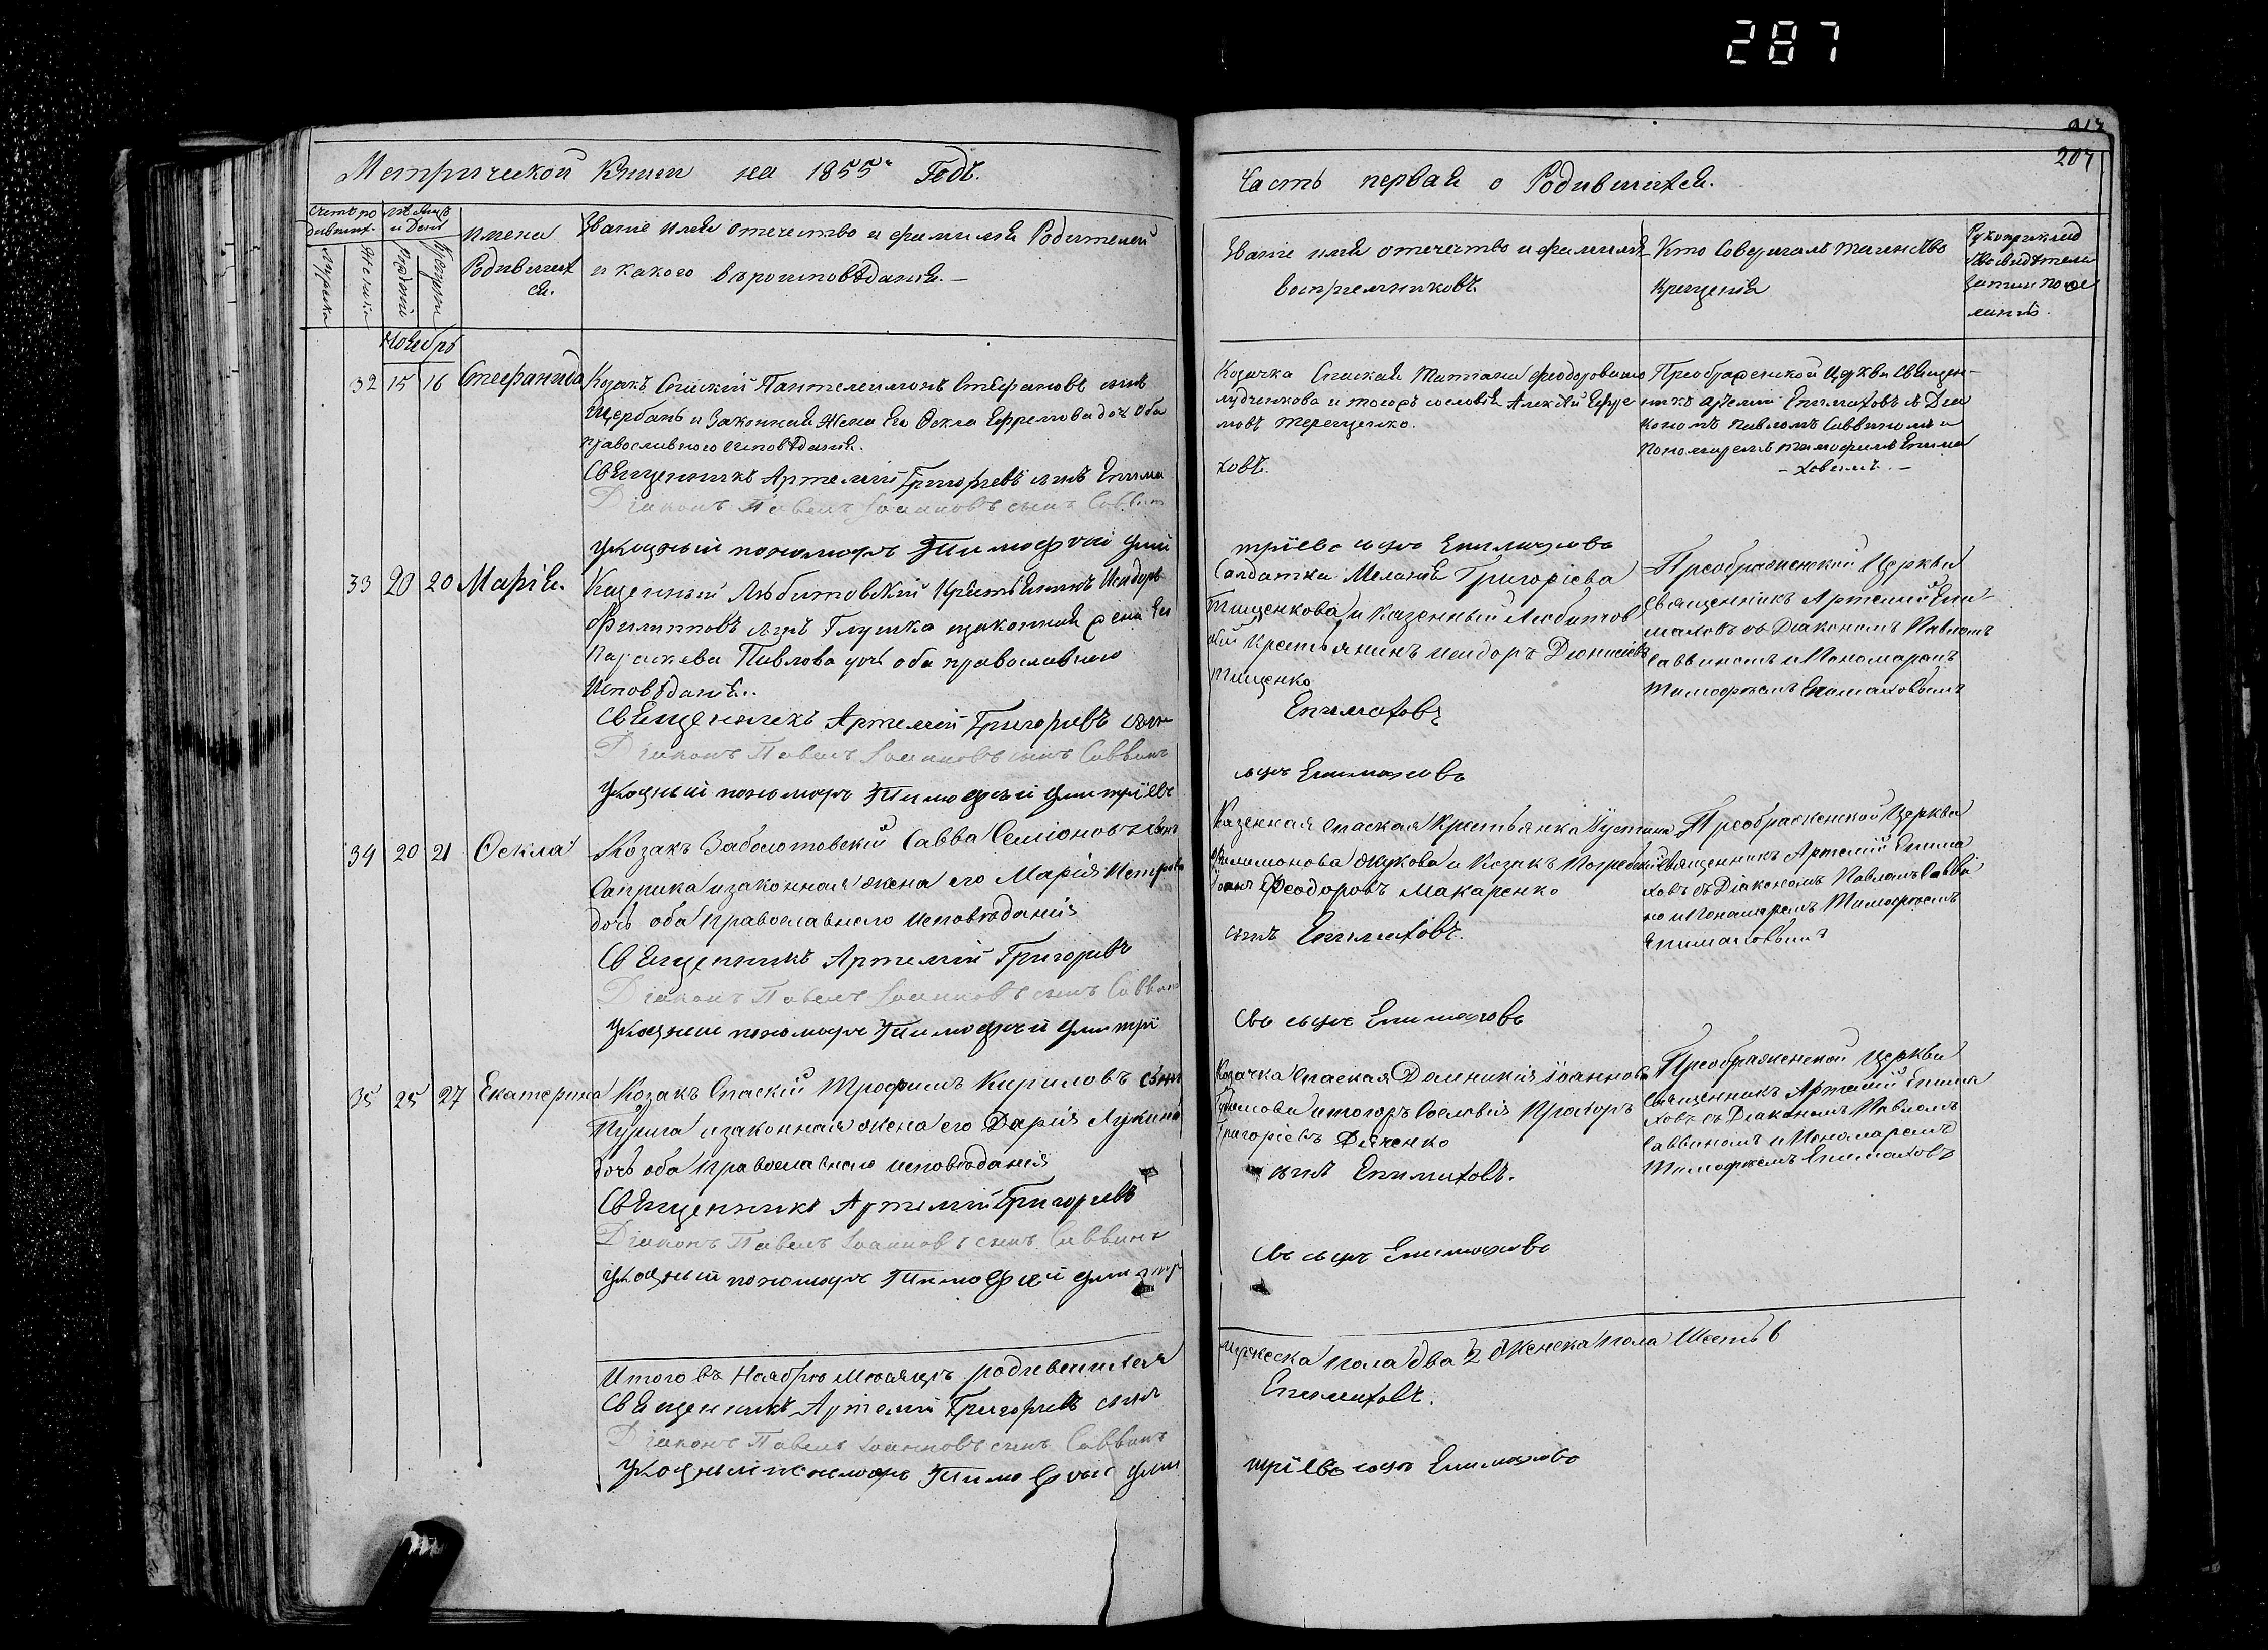 287
207
Метрической Книги на 1855й Годъ.
Часть первая о Родившихся.
Счетъ ро
дивших.
Мѣсяцъ
и День
Мужеска
Женска
Рожденія
Крещенія
Имена
Родивших
ся.
Званіе имя отечество и фамилія Родителей
и какого вѣроисповѣданія.
Званіе имя отечество и фамилія
воспріемниковъ.
Кто Совершалъ таинство
Крещенія
Рукоприклад
ство свидѣтелей
записи по же
ланію.
Ноябрь
32 15 16 Стефанида
Козакъ Спаскій Пантелеимонъ Стефановъ сынъ
Щербань и Законная Жена Его Ѳекла Ефремова доч. оба
православного исповѣданія.
Священникъ Артемій Григорьевъ сынъ Епима
Діаконъ Павелъ Іоанновъ сынъ Саввин
Указный пономарь Тимофѣй Дми
Козачка Спаская Татіана Феодоровна
и тогожъ сословія Алексѣй Ефре
мовъ Терещенко.
ховъ.
тріевъ сынъ Епимаховъ
Преображенской Церкви Священ-
никъ Артемій Епимаховъ съ Діа
кономъ Павломъ Саввинымъ и
Пономаремъ Тимофѣемъ Епима
-ховымъ.-
33 20 20 Марія.
Казенный Любитовскій Крестьянинъ Исидоръ
Филипповъ сынъ Глушко изаконная жена Ег
Параскева Павлова дочь оба православного
Исповѣданія..
Священникъ Артемій Григорьевъ сынъ
Діаконъ Павелъ Іоанновъ сынъ Саввинъ
Указный пономарь Тимофѣй Дмитріевъ
Солдатка Меланія Григоріева
Тищенкова и Казенный Любитов
скій Крестьянинъ Исидоръ Діонисіевъ
Тищенко
Епимаховъ
сынъ Епимаховъ
Преображенской Церкви
Священникъ Артемій Епи-
маховъ съ Діакономъ Павломъ
Саввиномъ и Пономаремъ
Тимофѣемъ Епимаховымъ
34 20 21 Ѳекла
Козакъ Заболотовскій Савва Семіоновъ сынъ
Саприка изаконная жена его Марія Петрова
дочь оба Православнаго исповѣданія
Священникъ Артемій Григорьевъ
Діаконъ Павелъ Іоанновъ сынъ Саввинъ
Указный пономарь Тимофѣй Дмитрі
Казенная Спаская Крестьянка Іустина
Филимонова Жукова и Козакъ
Іоанъ Феодоровъ Макаренко
сынъ Епимаховъ.
евъ сынъ Епимаховъ
Преображенской Церкви
Священникъ Артемій Епима
ховъ съ Діакономъ Павломъ Савви
но и Пономаремъ Тимофѣемъ
Епимаховымъ
35 25 27 Екатерина
Козакъ Спаскій Трофимъ Кириловъ сынъ
Пурига изаконная жена его Дарія Лукина
дочь оба Православнаго исповѣданія
Священникъ Артемій Григорьевъ
Діаконъ Павелъ Іоанновъ сынъ Саввинъ
Указный пономарь Тимофѣй Дмитр
Козачка Спаская Домникія Іоаннова
итогожъ Сословія Прохоръ
Григоріевъ Дяченко
сынъ Епимаховъ.
евъ сынъ Епимаховъ
Преображенской Церкви
Священникъ Артемій Епима
ховъ съ Діакономъ Павломъ
Саввиномъ и Пономаремъ
Тимофѣемъ Епимаховъ
Итого въ Ноябрѣ Мѣсяцѣ родившихся
Священникъ Артемій Григорьевъ сынъ
Діаконъ Павелъ Іоанновъ сынъ Саввинъ
Указный пономарь Тимофѣй Дми
Мужеска пола два 2 Женска пола Шесть 6
Епимаховъ.
тріевъ сынъ Епимаховъ